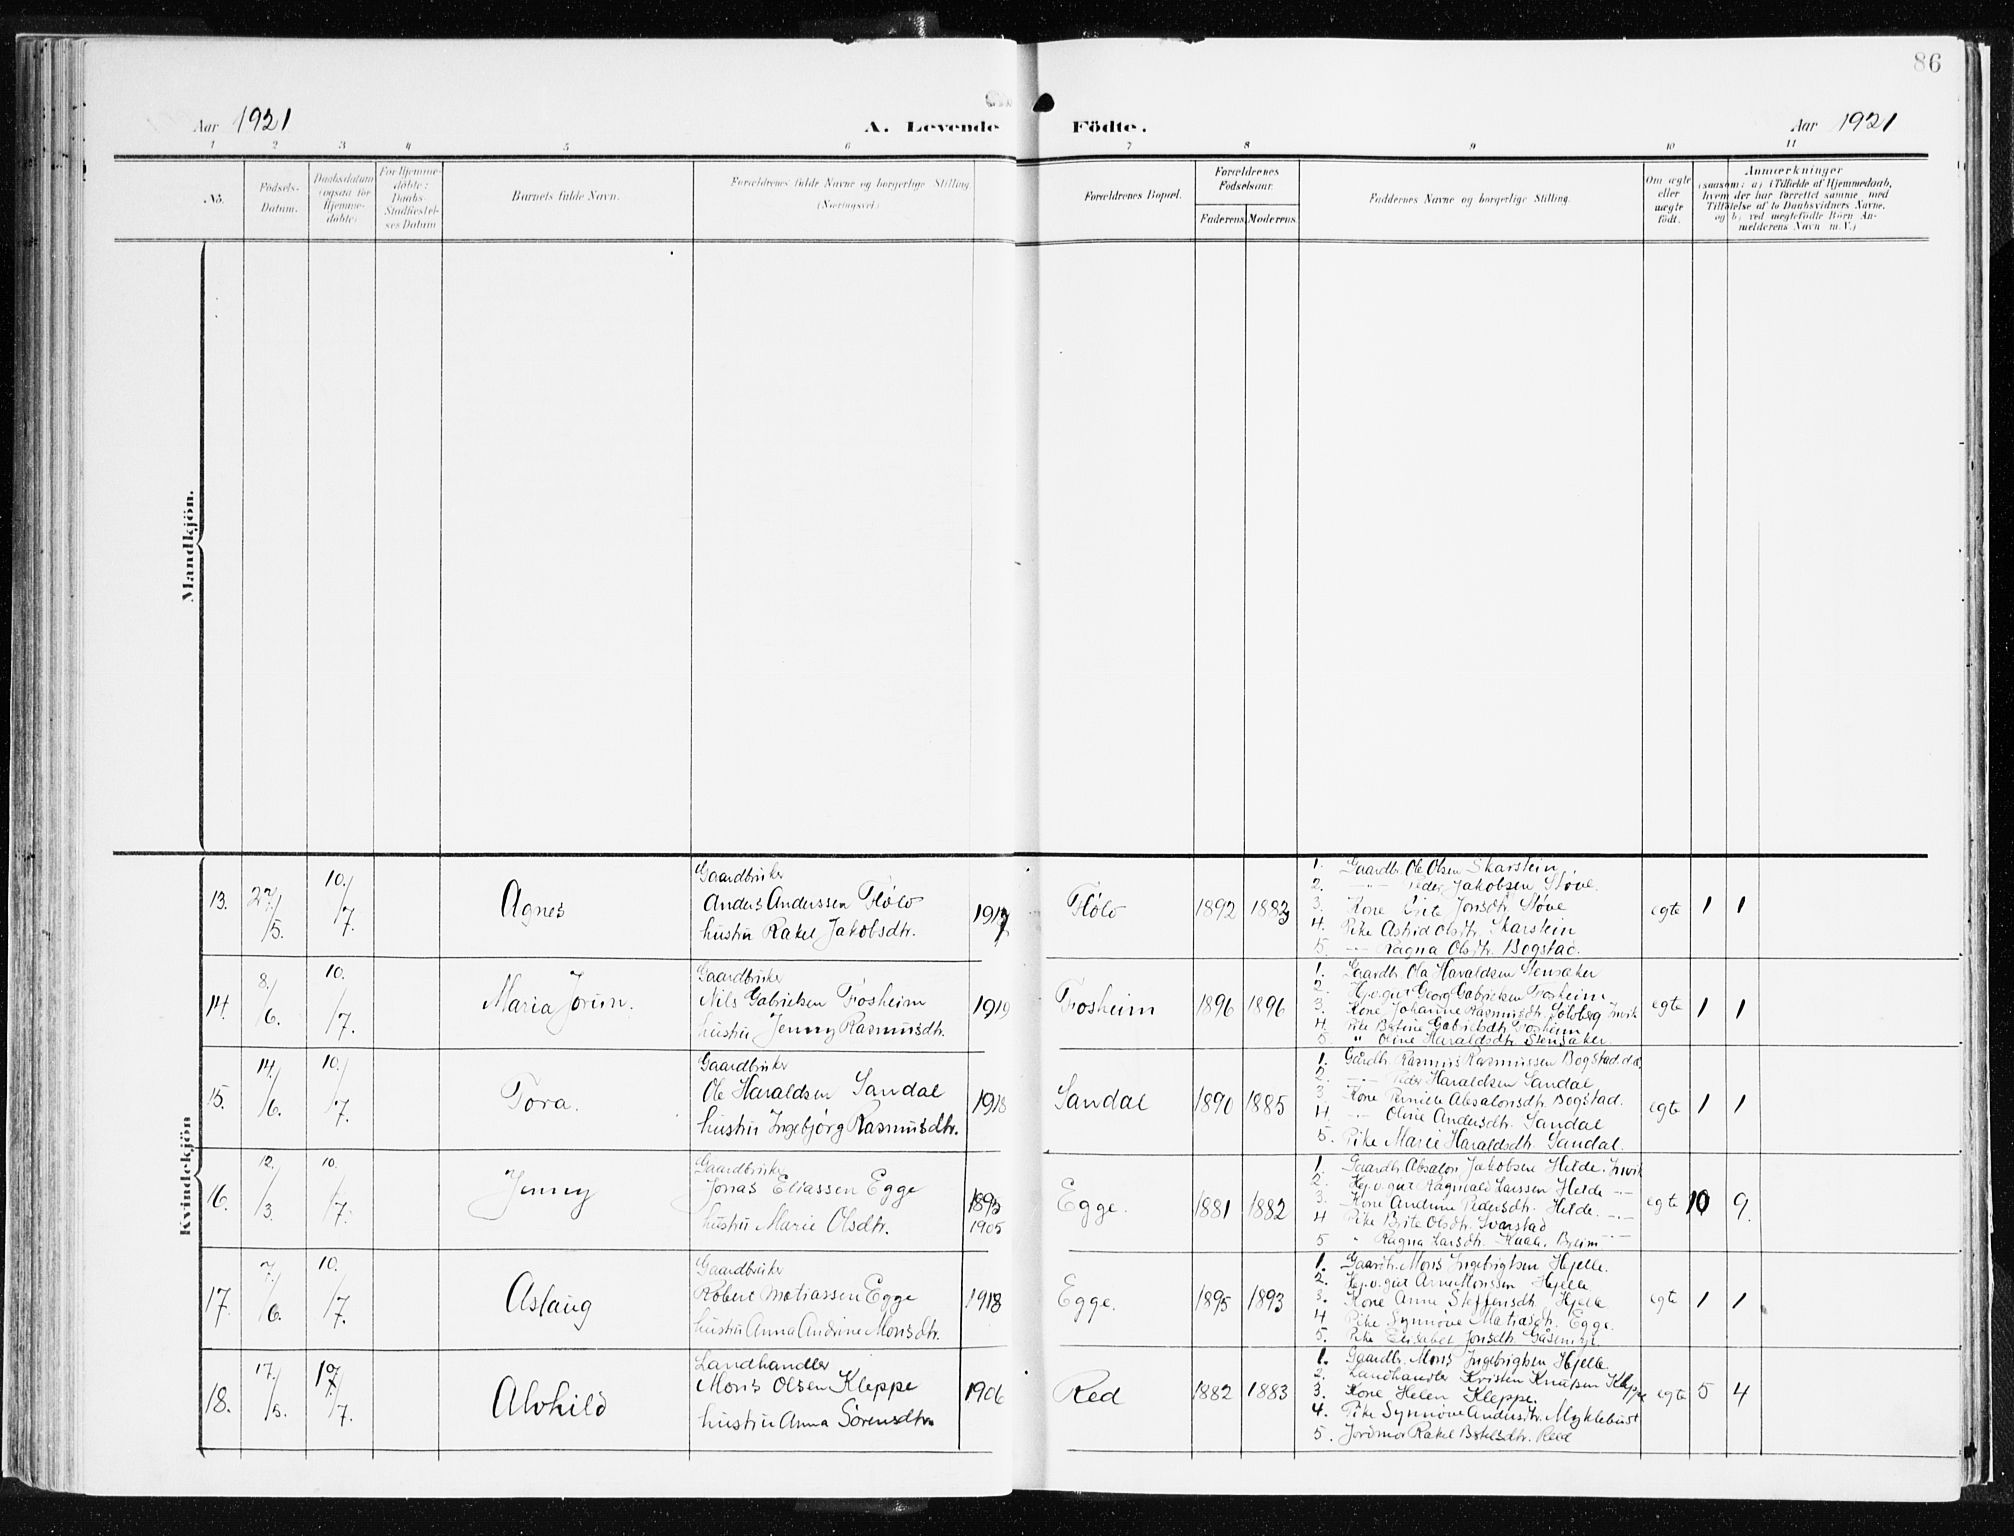 86
Aar 1921
A. Levende Födte.
Aar 1921
1 2 3 4 5 6 7 8 9 10 11
No.
Födsels-Datum.
Daabsdatum (ogsaa for Hjemme-döbte).
For Hjemme-döbte: Daabs-Stadfæstel-ses Datum
Barnets fulde Navn.
Forældrenes fulde Navne og borgerlige Stilling (Næringsvei.)
Forældrenes Bopæl.
Forældrenes Födselsaar.
Faderens Moderens
Faddernes Navne og borgerlige Stilling.
Om ægte eller uægte født.
Anmærkninger
(saasom: a) i Tilfælde af Hjemmedaab, hvem der har forrettet samme med Tilføielse af to Daabsvidners Navne. og b) ved uægtefødte Börn An-melderens Navn m.V.)
Mandkjön.
Kvindekjön
13. 27/5. 10./7. Agnes
Gaardbruker
Anders Anderssen Flölo
hustru Rakel Jakobsdtr.
1917
Flölo 1892 1883
1. Gaardbr. Ole Olsen Skarstein
2. —"— Peder Jakobsen Støve.
3. Kone Brite Jonsdtr. Støve
4. Pike Astrid Olsdtr. Skarstein
5. —"— Ragna Olsdtr. Bogstad.
egte 1 1
14. 8./6. 10./7. Maria Jorun.
Gaardbruker
Nils Gabrielsen Frosheim
hustru Jenny Rasmusdtr.
1919
Frosheim 1896 1896
1. Gaardbr. Ola Haraldsen Stensaker
2. Hj.v.gut Georg Gabrielsen Frosheim
3. Kone Johanne Rasmusdtr. Solberg Invik
4. Pike Batine Gabrielsdtr. Frosheim
5. " Oline Haraldsdtr. Stensaker.
egte 1 1
15. 14/6. 10./7. Tora.
Gaardbruker
Ole Haraldsen Sandal
hustru Ingebjörg Rasmusdtr.
1918
Sandal 1890 1885
1. Gårdbr. Rasmus Rasmussen Bogstad
2. —"— Peder Haraldsen Sandal
3. Kone Pernille Absalonsdtr. Bogstad.
4. —"— Oline Andersdtr. Sandal
5. Pike Marie Haraldsdtr. Sandal.
egte 1 1
16. 12./3. 10./7. Jenny
Gaardbruker
Jonas Eliassen Egge
hustru Marie Olsdtr.
1905
Egge. 1881 1882
1. Gaardbr. Absalon Jakobsen Hilde. Invik
2. Hj.v.gut Ragnvald Larssen Hilde —"—
3. Kone Andrine Pedersdtr. Hilde. —"—
4 Pike Brite Olsdtr. Svarstad
5 " Ragna Larsdtr. Kaale. Breim
egte 10 9.
17. 7./6. 10./7. Aslaug
Gaardbruker
Robert Matiassen Egge
hustru Anna Andrine Monsdtr.
1918
Egge. 1895 1893
1. Gaardbr. Mons Ingebrigtsen Hjelle.
2. Hj.v.gut Arne Monssen Hjelle
3. Kone Anne Steffensdtr. Hjelle
4 Pike Synnöve Matiasdtr. Egge.
5. Pike Elisabet Jonsdtr. Gåsemyr.
egte 1 1
18. 17/5. 10/7. Alvhild
Landhandler
Mons Olsen Kleppe
hustru Anna Sörensdtr.
1906
Red 1882 1883
1. Gaardbr. Mons Ingebrigtsen Hjelle.
2. Landhandler Kristen Knutsen Kleppe
3. Kone Helen Kleppe.
4. Pike Synnöve Andersdtr. Myklebust
5. Jordmor Rakel Botelsdtr. Reed
egte 5 4